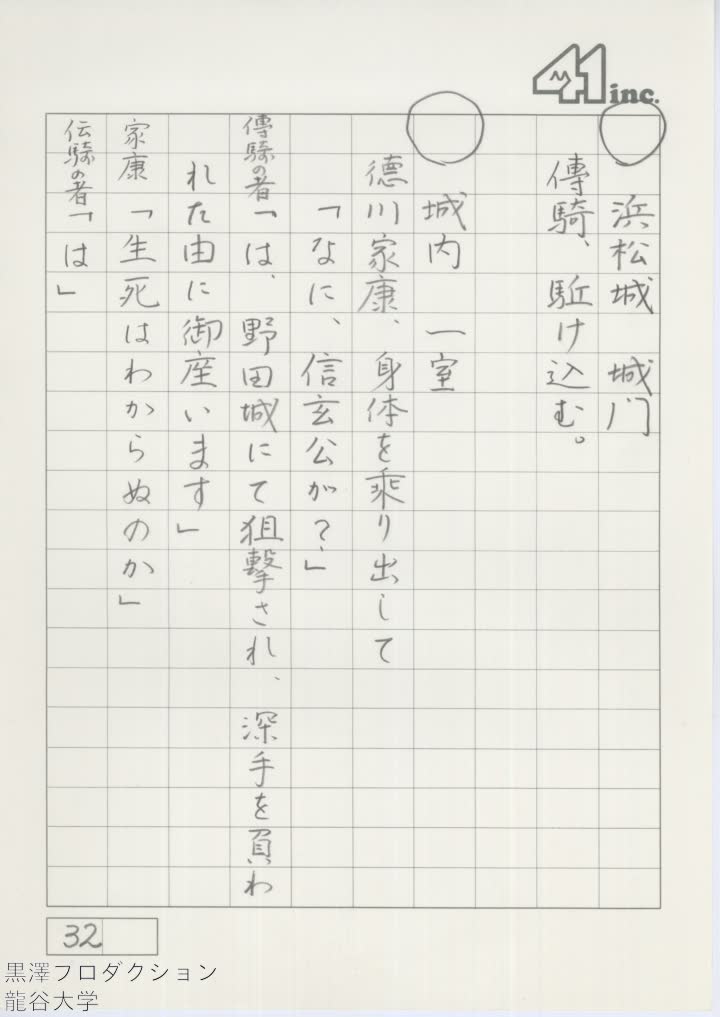 41 inc.
浜松城　城門
傳騎、駈け込む。
城内　一室
徳川家康、身体を乗り出して
「なに、信玄公が？」
傳騎の者「は、野田城にて狙撃され、深手を負わ
れた由に御座います」
家康「生死はわからぬのか」
伝騎の者「は」
32
黒澤プロダクション
龍谷大学